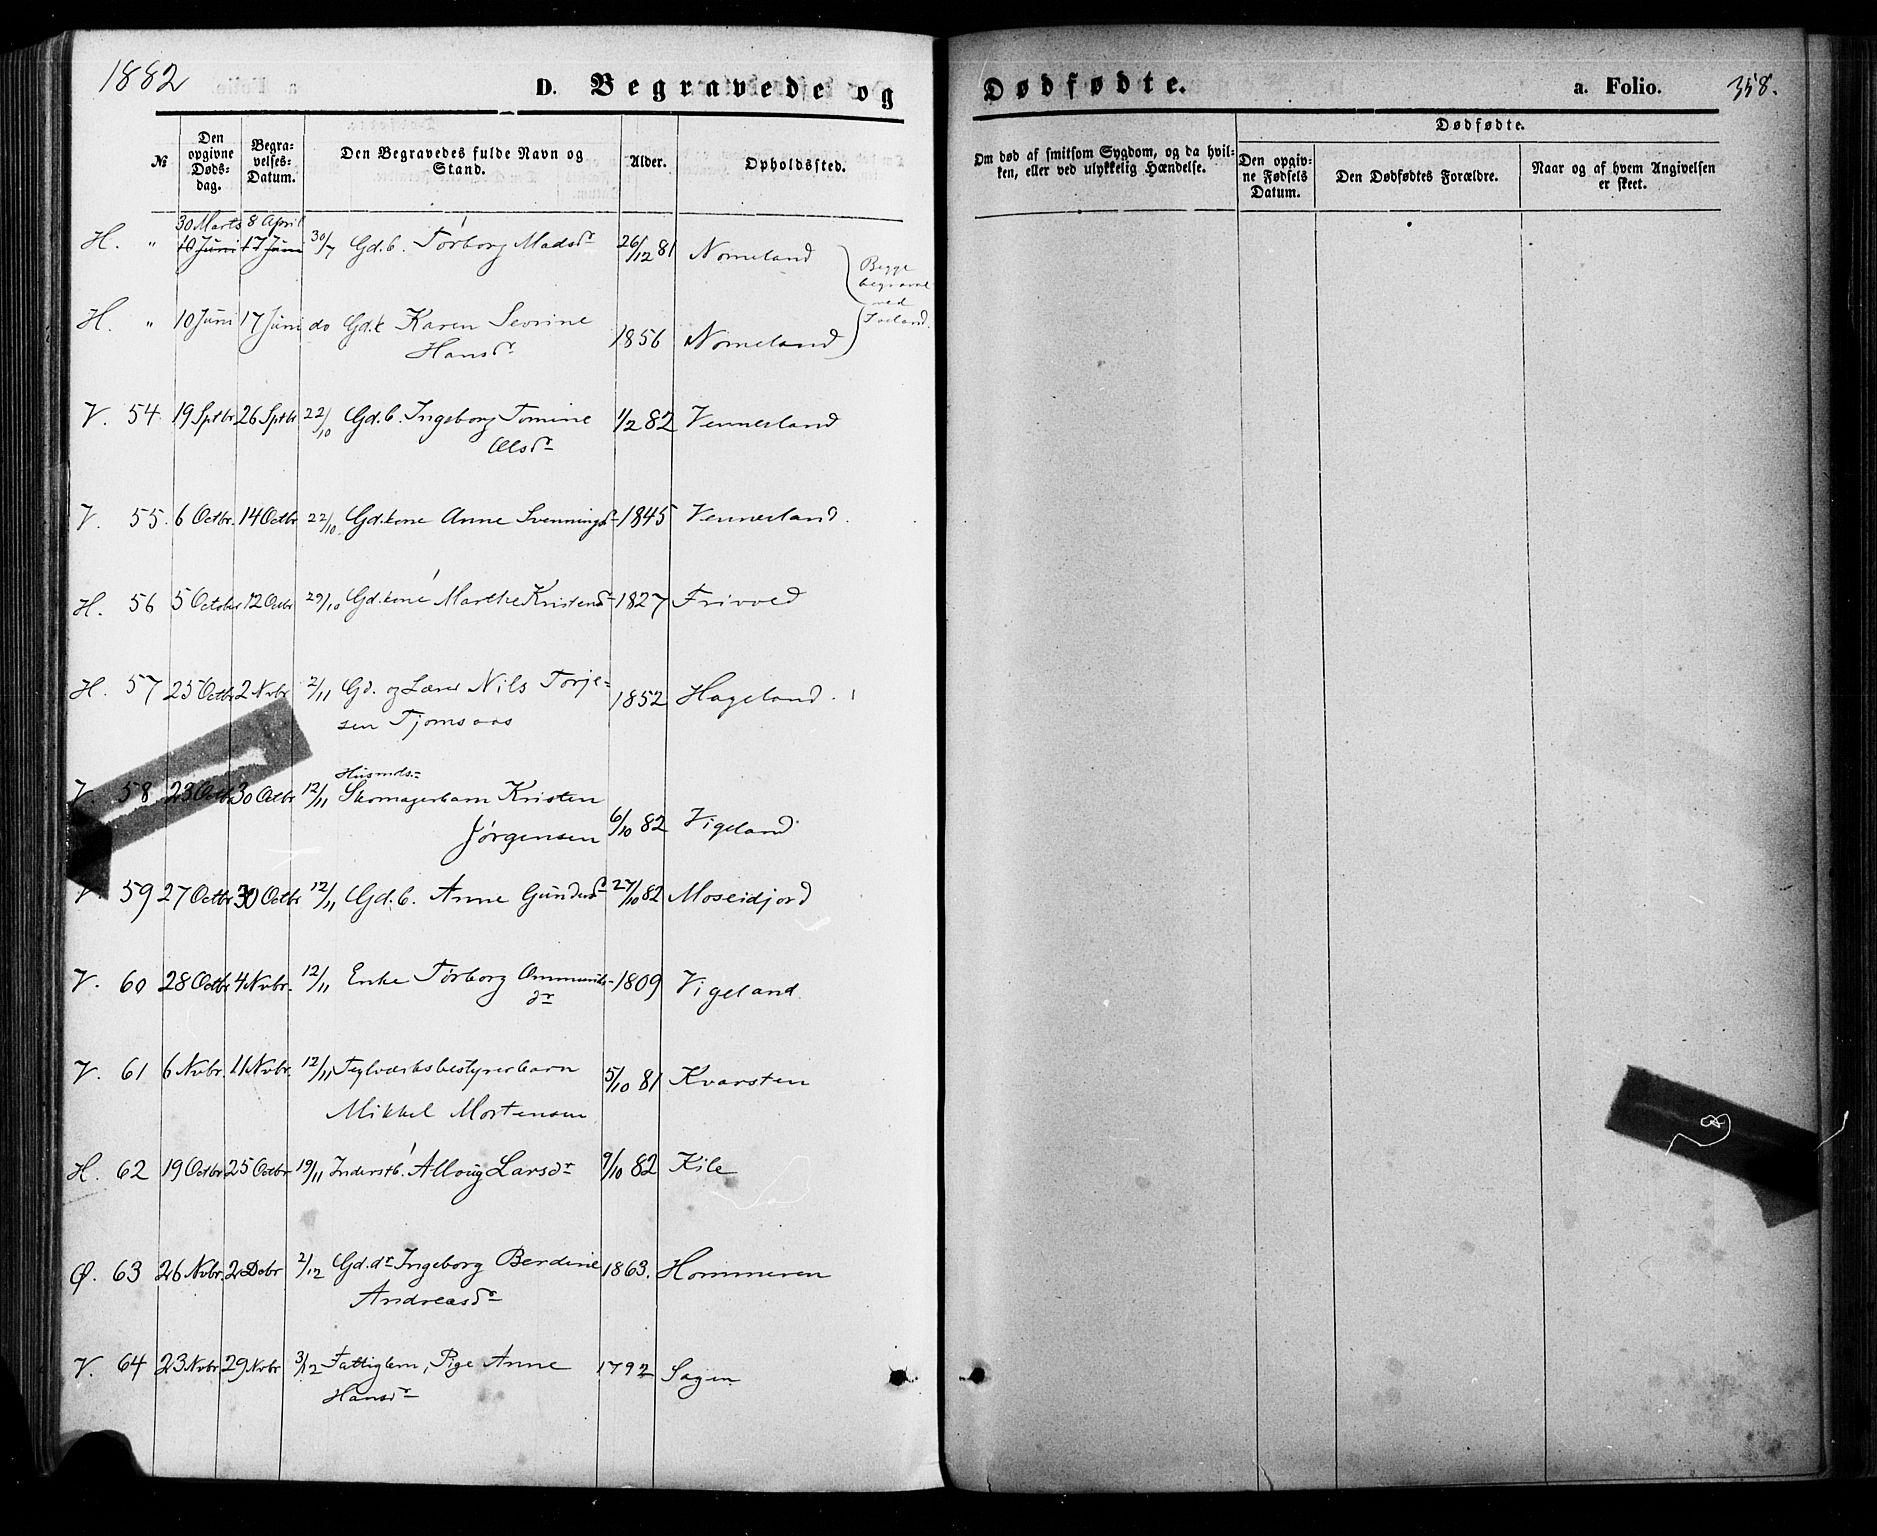 1882
D. Begravede og Dødfødte.
a. Folio. 358.
№
Den opgivne Døds-dag.
Begra-velses-Datum.
Den Begravedes fulde Navn og Stand.
Alder.
Opholdssted.
Om død af smitsom Sygdom, og da hvil-ken, eller ved ulykkelig Hændelse.
Dødfødte.
Den opgiv-ne Fødsels Datum.
Den Dødfødtes Forældre.
Naar og af hvem Angivelsen er skeet.
30 Marts 8 April
H. " 10 Juni 17 Juni 30/7 Gd.b. Torborg Madsdr 26/12 81 Nomeland
Begge begravne ved
H. " 10 Juni 17 Juni do Gd.k Karen Severine
Hansdr 1856 Nomeland
V. 54 19 Sptbr 26 Sptbr 22/10 Gd.b. Ingeborg Tomine 1/2 82 Vennesland
Olsdr
V. 55 6 Octbr. 14 Octbr 22/10 Gd.kone Anne Svenningsdr 1845 Vennesland.
H. 56 5 October 12 Octbr 29/10 Gd.kone Marthe Kristensdr 1827 Frivold
H. 57 25 Octbr 2 Nvbr 2/11 Gd. og Lærer Nils Torje-
sen Tjomsaas 1852 Hageland.
Husmds.-
V. 58 23 Octbr 30 Octbr 12/11 Skomagerbarn Kristen
Jørgensen 6/10 82 Vigeland
V. 59 27 Octbr 30 Octbr 12/11 Gd.b. Anne Gundersdr 27/10 82 Moseidjord
V. 60 28 Octbr 4 Nvbr. 12/11 Enke Torborg Ommunds-
dr 1809 Vigeland.
V. 61 6 Nvbr. 11 Nvbr. 12/11 Teglværksbestyrerbarn
Mikkel Mortensen 5/10 81 Kvarsten
H. 62 19 Octbr 25 Octbr 19/11 Inderstb. Allovig Larsdr 9/10 82 Kile
Ø. 63 26 Nvbr. 2 Dcbr 2/12 Gd.dr Ingeborg Berdine 1863. Hommeren
Andreasdr
V. 64 23 Nvbr 29 Nvbr 3/12 Fattiglem, Pige Anne 1792 Sagen
Hansdr